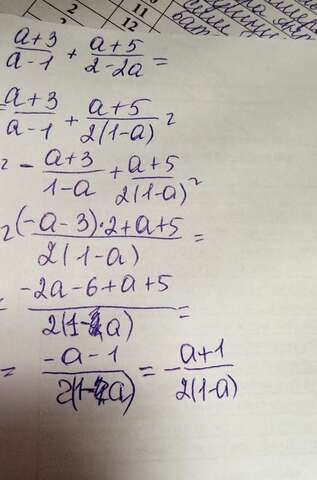 11
2
12
(a+3)/(a-1) + (a+5)/(2-2a) =
= (a+3)/(a-1) + (a+5)/(2(1-a)) =
= - (a+3)/(1-a) + (a+5)/(2(1-a)) =
= ((-a-3)·2+a+5)/(2(1-a)) =
= (-2a-6+a+5)/(2(1-a)) =
= (-a-1)/(2(1-a)) = - (a+1)/(2(1-a))